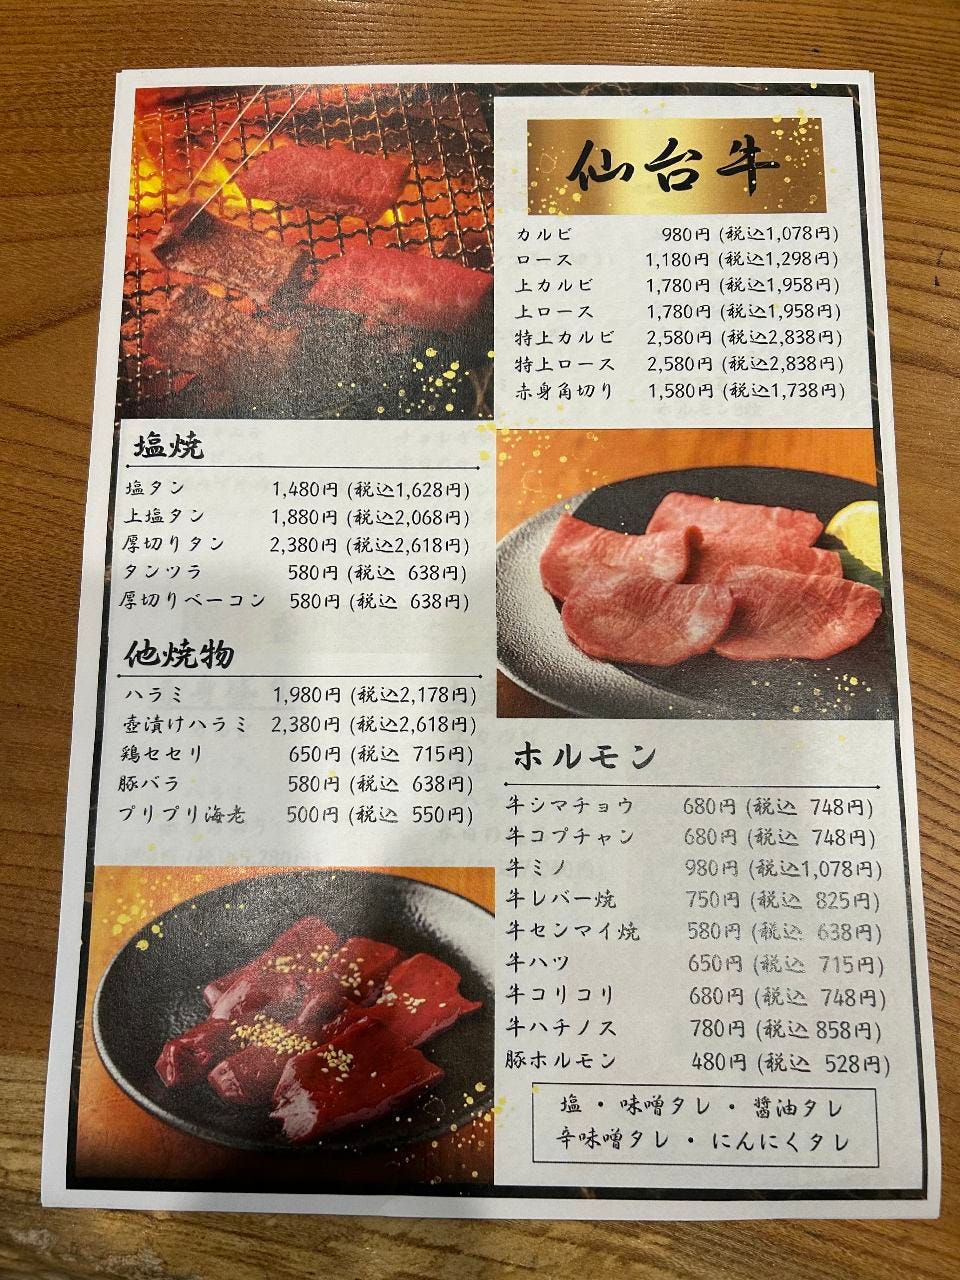 仙台牛
カルビ 980円 (税込1,078円)
ロース 1,180円 (税込1,298円)
上カルビ 1,780円 (税込1,958円)
上ロース 1,780円 (税込1,958円)
特上カルビ 2,580円 (税込2,838円)
特上ロース 2,580円 (税込2,838円)
赤身角切り 1,580円 (税込1,738円)
塩焼
塩タン 1,480円 (税込1,628円)
上塩タン 1,880円 (税込2,068円)
厚切りタン 2,380円 (税込2,618円)
タンツラ 580円 (税込 638円)
厚切りベーコン 580円 (税込 638円)
他焼物
ハラミ 1,980円 (税込2,178円)
壺漬けハラミ 2,380円 (税込2,618円)
鶏セセリ 650円 (税込 715円)
豚バラ 580円 (税込 638円)
プリプリ海老 500円 (税込 550円)
ホルモン
牛シマチョウ 680円 (税込 748円)
牛コプチャン 680円 (税込 748円)
牛ミノ 980円 (税込1,078円)
牛レバー焼 750円 (税込 825円)
牛センマイ焼 580円 (税込 638円)
牛ハツ 650円 (税込 715円)
牛コリコリ 680円 (税込 748円)
牛ハチノス 780円 (税込 858円)
豚ホルモン 480円 (税込 528円)
塩・味噌タレ・醤油タレ
辛味噌タレ・にんにくタレ